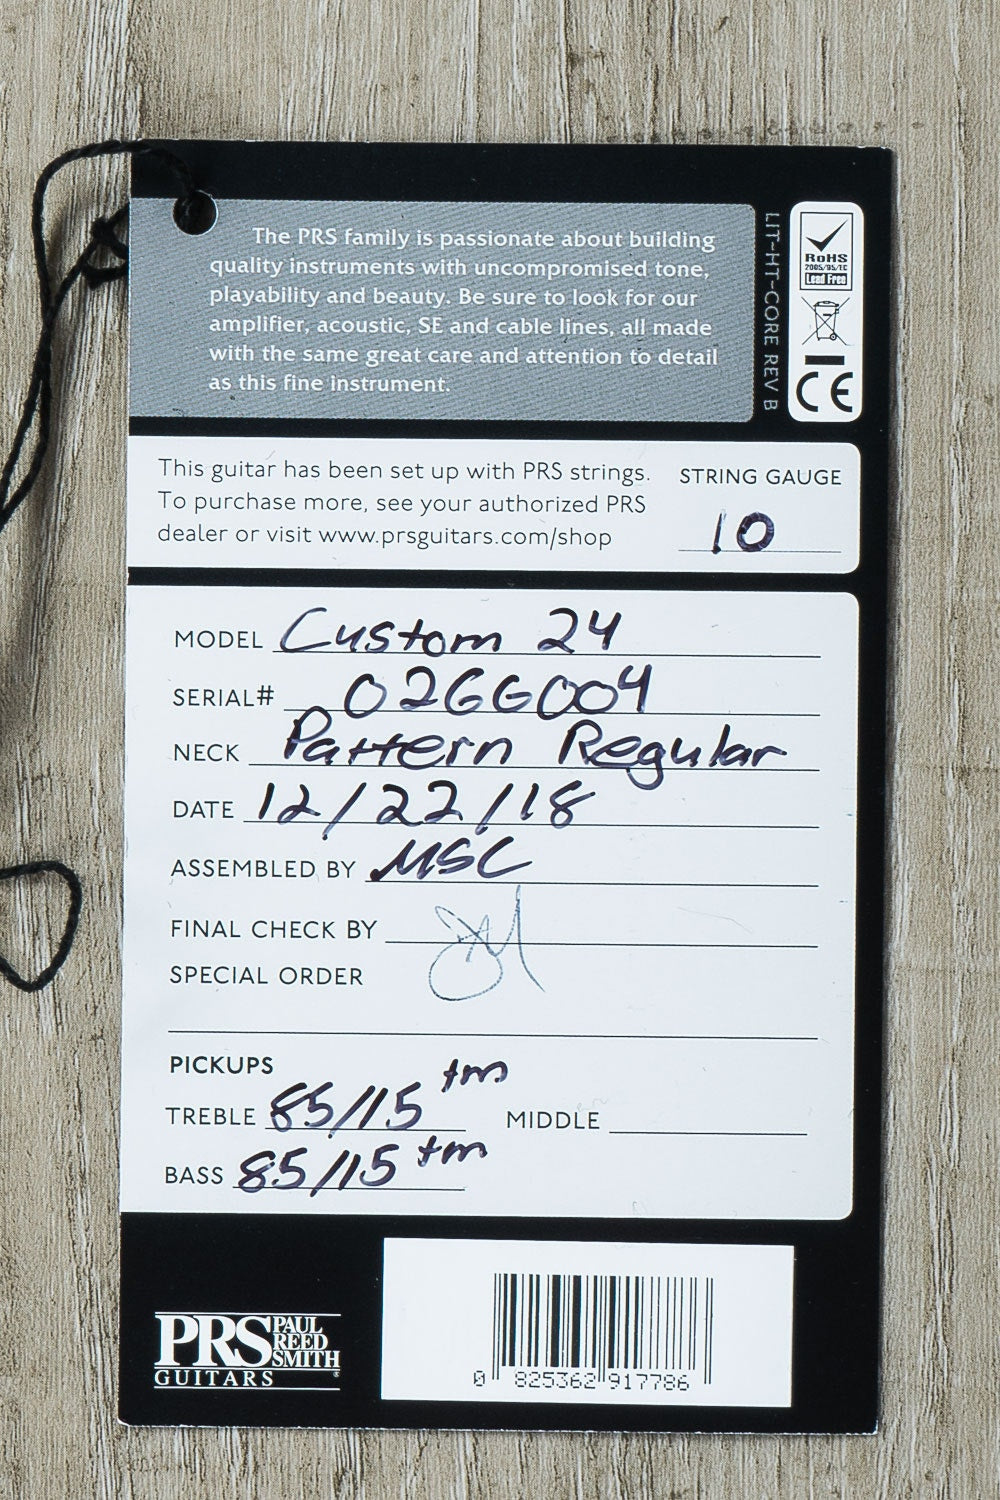 The PRS family is passionate about building
quality instruments with uncompromised tone,
playability and beauty. Be sure to look for our
amplifier, acoustic, SE and cable lines, all made
with the same great care and attention to detail
as this fine instrument.
LIT-HT-CORE REV B
RoHS
2005/95/EC
Lead Free
CE
This guitar has been set up with PRS strings.
To purchase more, see your authorized PRS
dealer or visit www.prsguitars.com/shop
STRING GAUGE
10
MODEL Custom 24
SERIAL# 026G004
NECK Pattern Regular
DATE 12/22/18
ASSEMBLED BY MSC
FINAL CHECK BY
SPECIAL ORDER
PICKUPS
TREBLE 85/15 tm MIDDLE
BASS 85/15 tm
PRS PAUL REED SMITH
GUITARS
0 825362 917786